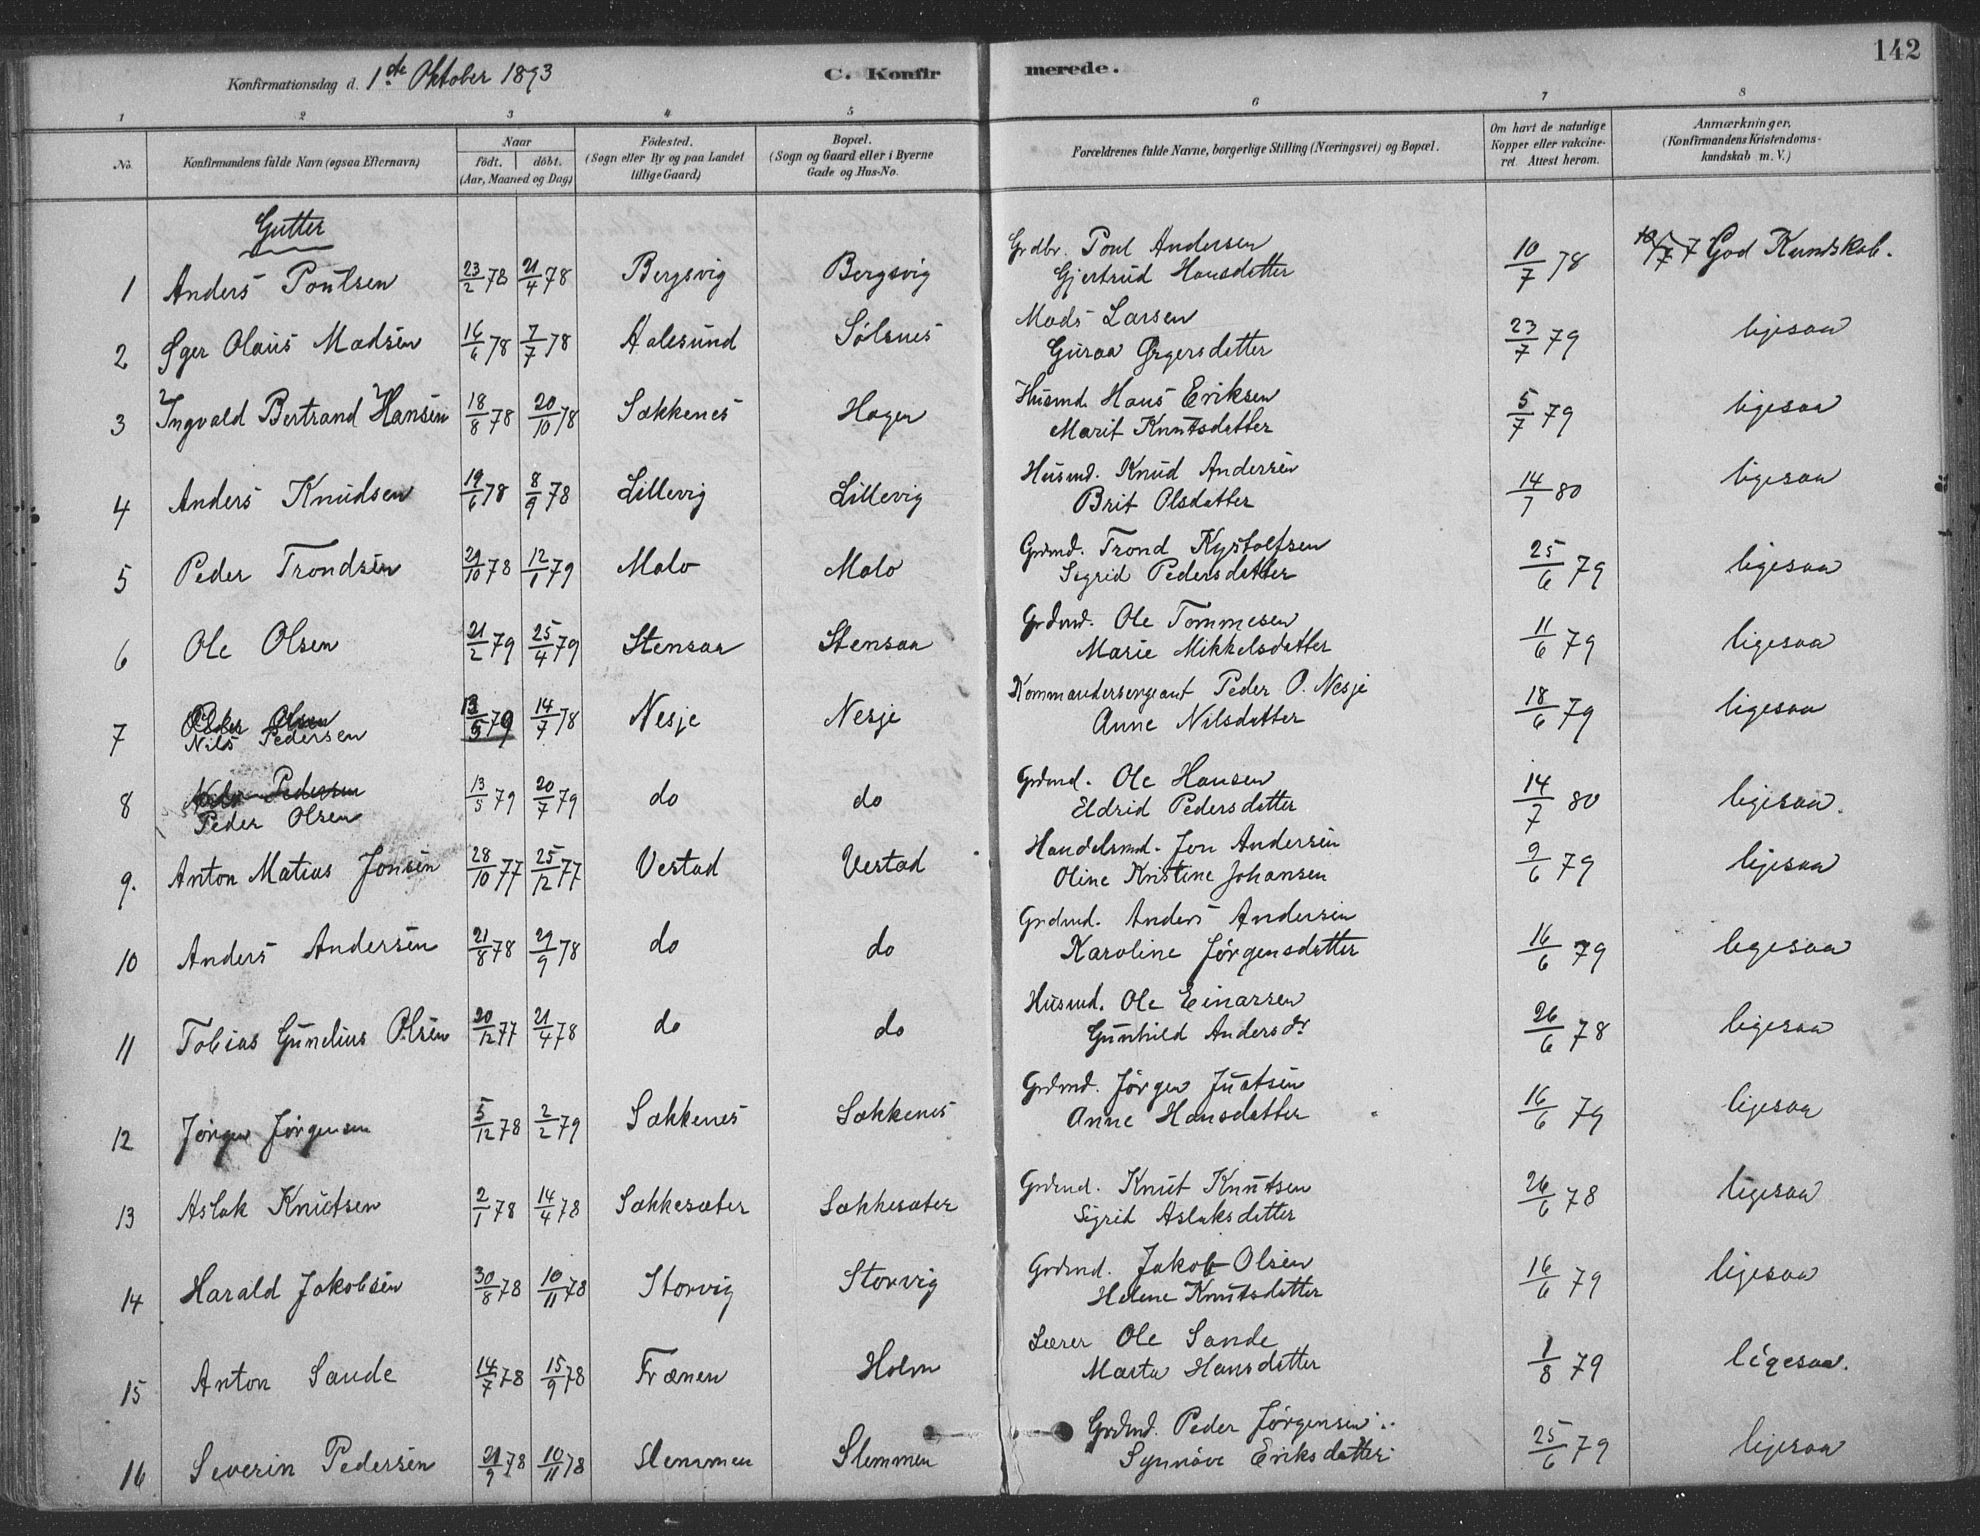 142
Konfirmationsdag d. 1ste Oktober 1893 C. Konfirmerede.
1 2 3 4 5 6 7 8
No. Konfirmandens fulde Navn (ogsaa Efternavn) Naar födt. döbt. (Aar, Maaned og Dag) Födested. (Sogn eller By og paa Landet tillige Gaard) Bopæl. (Sogn og Gaard eller i Byerne Gade og Hus-No. Forældrenes fulde Navne, borgerlige Stilling (Næringsvei) og Bopæl. Om havt de naturlige Kopper eller vakcineret. Attest herom. Anmærkninger. (Konfirmandens Kristendomskundskab m. V.)
Gutter
1 Anders Poulsen 23/2 78 21/4 78 Bergsvig Bergsvig Grdbr. Poul Andersen Gjertrud Hansdatter 10/7 78 God Kundskab.
2 Øger Olaus Madsen 16/6 78 7/7 78 Aalesund Sølsnes Mads Larsen Guraa Øgersdatter 23/7 79 ligesaa
3 Ingvald Bertrand Hansen 18/8 78 20/10 78 Sækkenes Hagen Husmd. Hans Eriksen Marit Knutsdatter 5/7 79 ligesaa
4 Anders Knudsen 19/6 78 8/9 78 Lillevig Lillevig Husmd. Knud Andersen Brit Olsdatter 14/7 80 ligesaa
5 Peder Trondsen 21/10 78 12/1 79 Malo Malo Grdmd. Trond Kystolfsen Sigrid Pedersdatter 25/6 79 ligesaa
6 Ole Olsen 21/2 79 25/4 79 Stensaa Stensaa Grdmd. Ole Tommesen Marie Mikkelsdatter 11/6 79 ligesaa
7 Peder Olsen Nils Pedersen 13/5 79 14/7 78 Nesje Nesje Kommandersergeant Peder O. Nesje Anne Nilsdatter 18/6 79 ligesaa
8 Nils Pedersen Peder Olsen 13/5 79 20/7 79 do do Grdmd. Ole Hansen Eldrid Pedersdatter 14/7 80 ligesaa.
9. Anton Matias Jonsen 28/10 77 25/12 77 Vestad Vestad Handelsmd. Jon Andersen Oline Kristine Johansen 9/6 79 ligesaa
10 Anders Andersen 21/8 78 29/9 78 do do Grdmd. Anders Andersen Karoline Jørgensdatter 16/6 79 ligesaa
11 Tobias Gundius Olsen 20/12 77 21/4 78 do do Husmd. Ole Einarsen Gunhild Andersdr 26/6 78 ligesaa
12 Jørgen Jørgensen 5/12 78 2/2 79 Sækkenes Sækkenes Grdmd. Jørgen Justsen Anne Hansdatter 16/6 79 ligesaa
13 Aslak Knutsen 2/1 78 14/4 78 Sækkesæter Sækkesæter Grdmd. Knut Knutsen Sigrid Aslaksdatter 26/6 78 ligesaa
14 Harald Jakobsen 30/8 78 10/11 78 Storvig Storvig Grdmd. Jakob Olsen Helene Knutsdatter 16/6 79 ligesaa
15 Anton Sande 14/7 78 15/9 78 Frænen Holm Lærer Ole Sande Marta Hansdatter 1/8 79 ligesaa.
16 Severin Pedersen 21/9 78 10/11 78 Slemmen Slemmen Grdmd. Peder Jørgensen Synnøve Eriksdatter 25/6 79 ligesaa